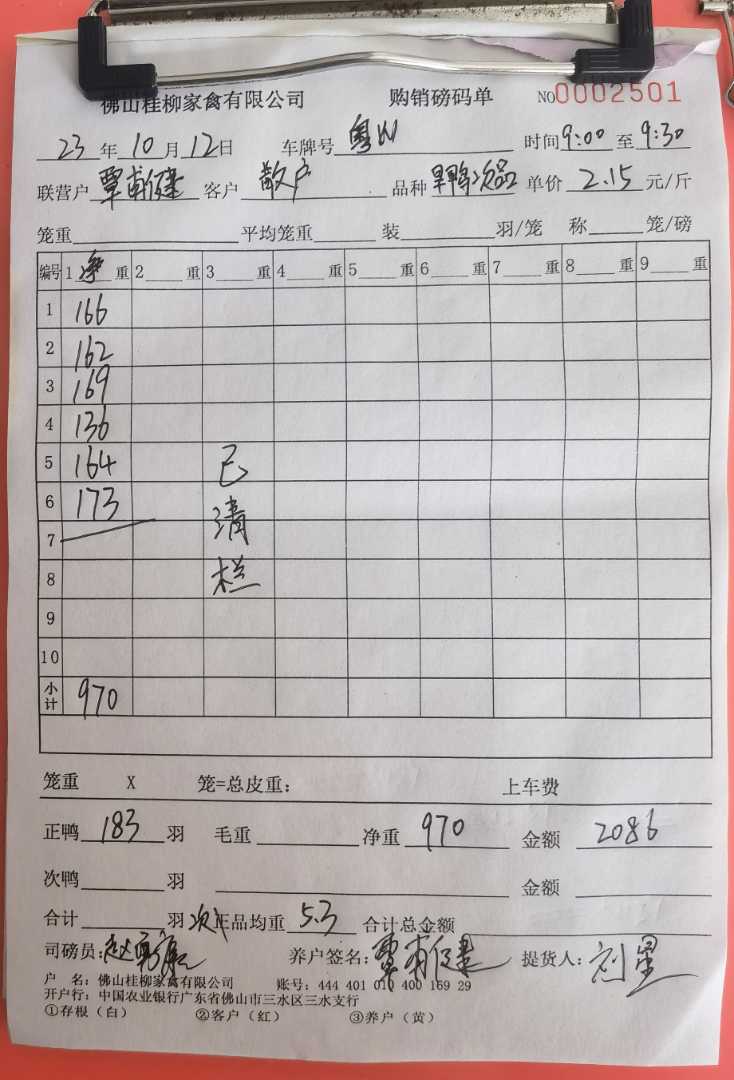 佛山桂柳家禽有限公司 购销磅码单 NO0002501
23年10月12日 车牌号 粤 时间9:00至9:30
联营户 覃甫健 客户 散户 品种 旱鸭次品 单价 2.15 元/斤
笼重 平均笼重 装 羽/笼 称 笼/磅
编号 1 净 重 2 重 3 重 4 重 5 重 6 重 7 重 8 重 9 重
1 166
2 162
3 169
4 136
5 164 已
6 173 清
7
8 栏
9
10
小计 970
笼重 X 笼=总皮重: 上车费
正鸭 183 羽 毛重 净重 970 金额 2086
次鸭 羽 金额
合计 羽 次 正品均重 5.3 合计总金额
司磅员: 养户签名: 覃甫健 提货人: 刘星
户 名: 佛山桂柳家禽有限公司 账号: 444 401 010 400 169 29
开户行: 中国农业银行广东省佛山市三水区三水支行
①存根(白) ②客户(红) ③养户(黄)